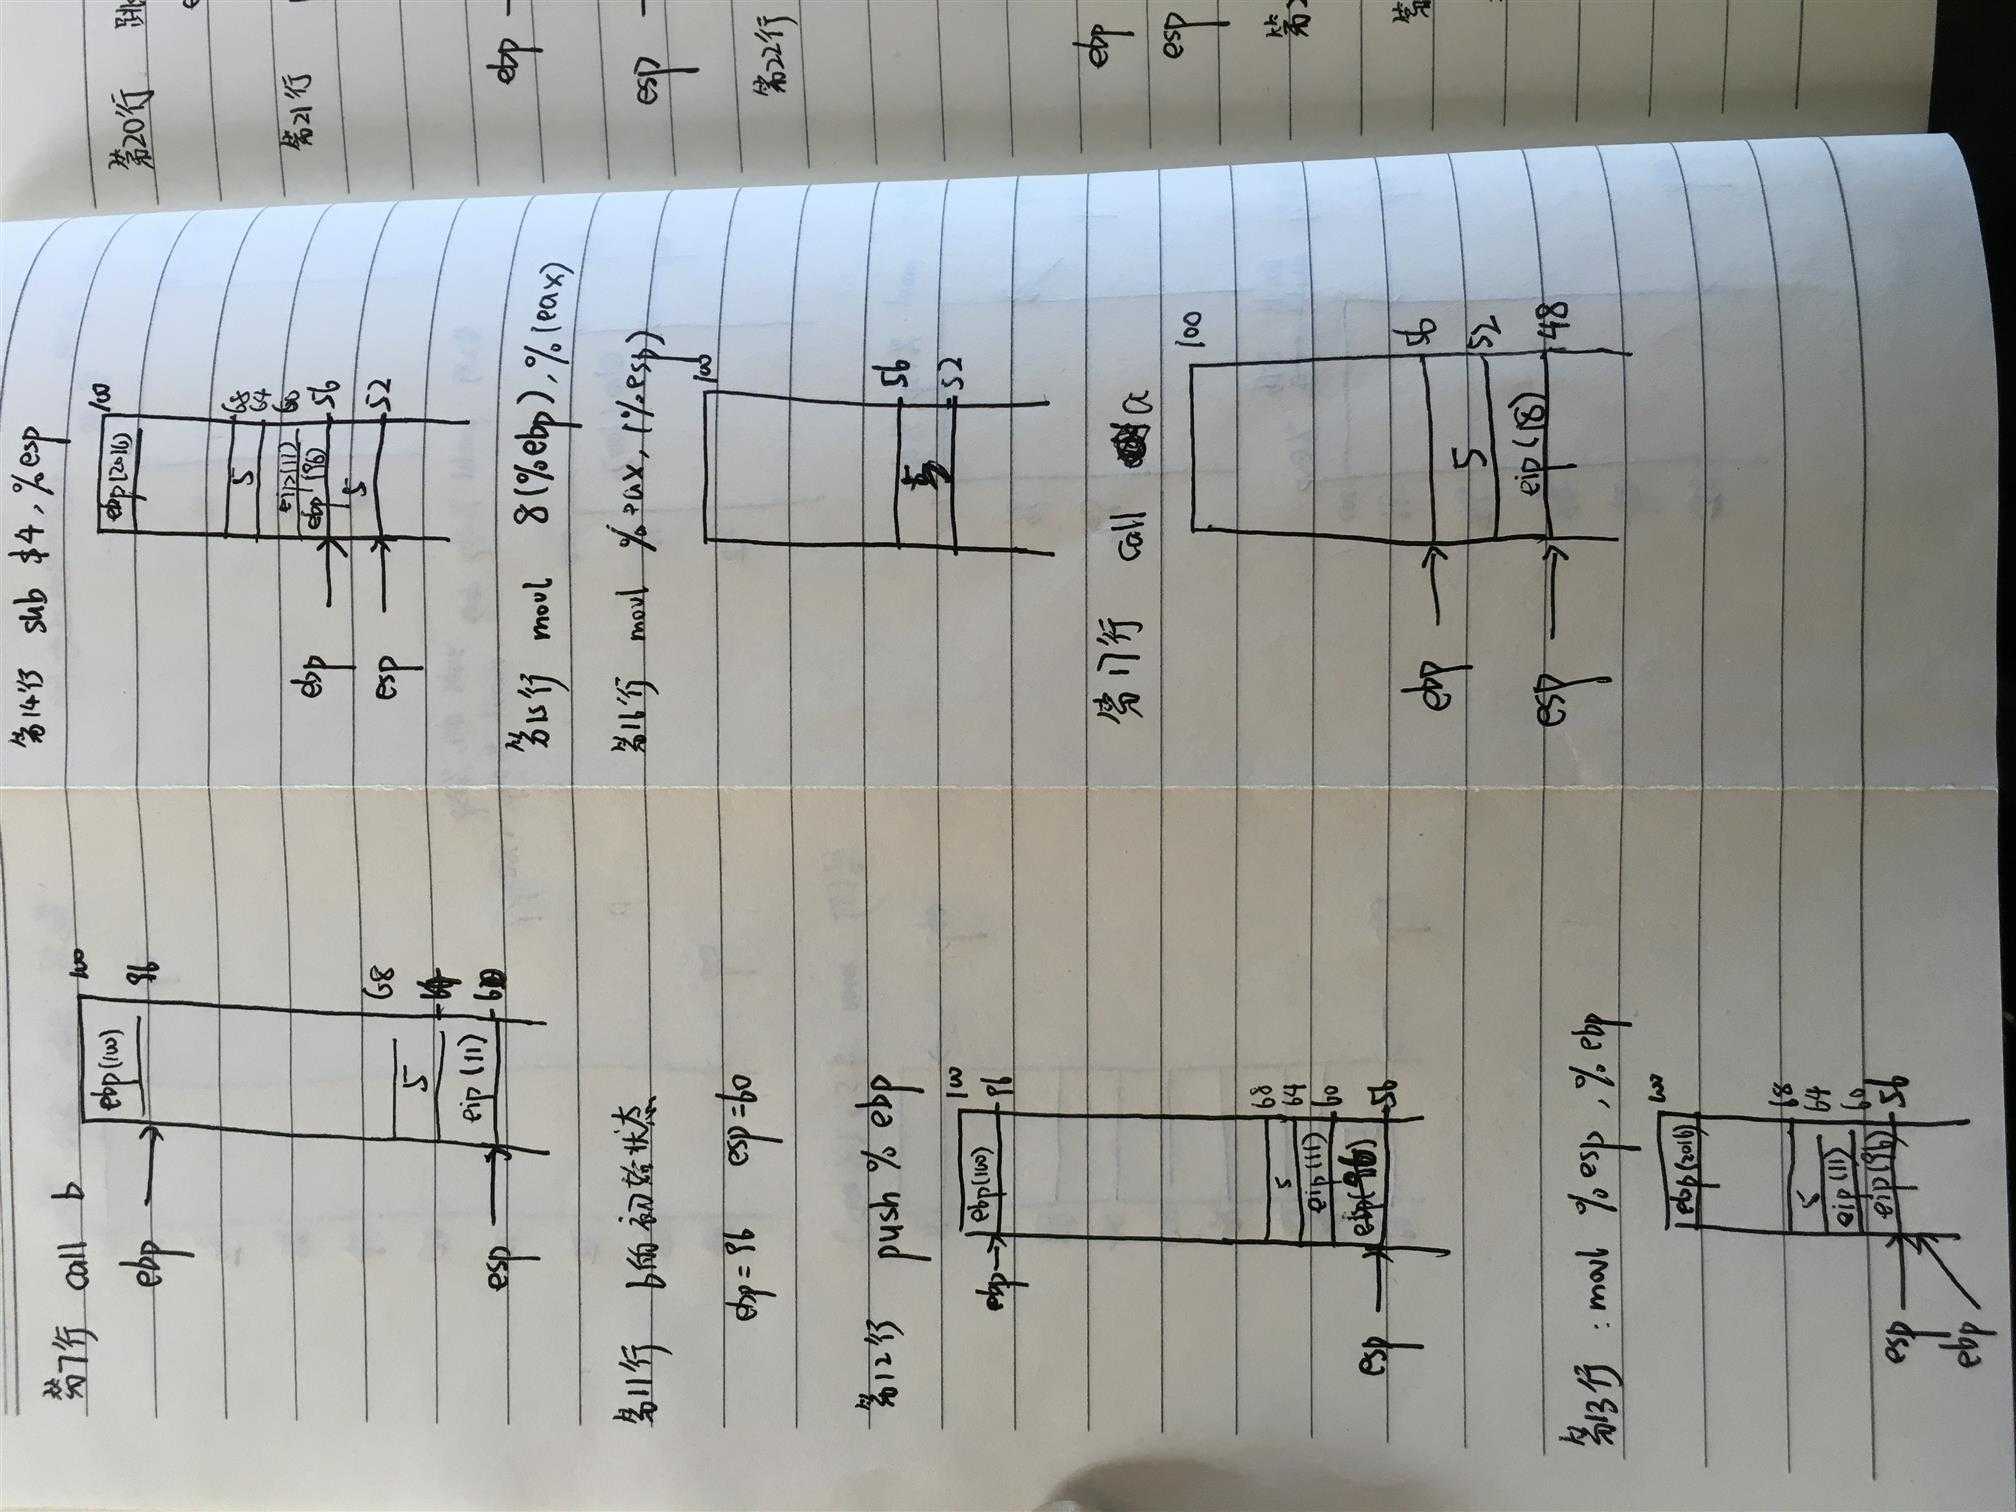 第7行 call b
100
ebp(100)
96
ebp
68
5
64
eip(11)
60
esp
第11行 b的初始状态
ebp=96 esp=60
第12行 push % ebp
100
ebp(100)
96
ebp
68
5
64
eip(11)
60
ebp(96)
56
esp
第13行:movl %esp,%ebp
100
ebp(2016)
68
5
64
eip(11)
60
eip(96)
56
esp
ebp
第14行 sub $4,%esp
100
ebp(2016)
68
5
64
eip(11)
60
ebp(96)
56
ebp
5
52
esp
第15行 movl 8(%ebp),%(eax)
第16行 movl %eax,(%esp)
100
56
5
52
第17行 call a
100
56
ebp
5
52
eip(18)
48
esp
第20行 跳
第21行
ebp
esp
第22行
ebp
esp
第
第